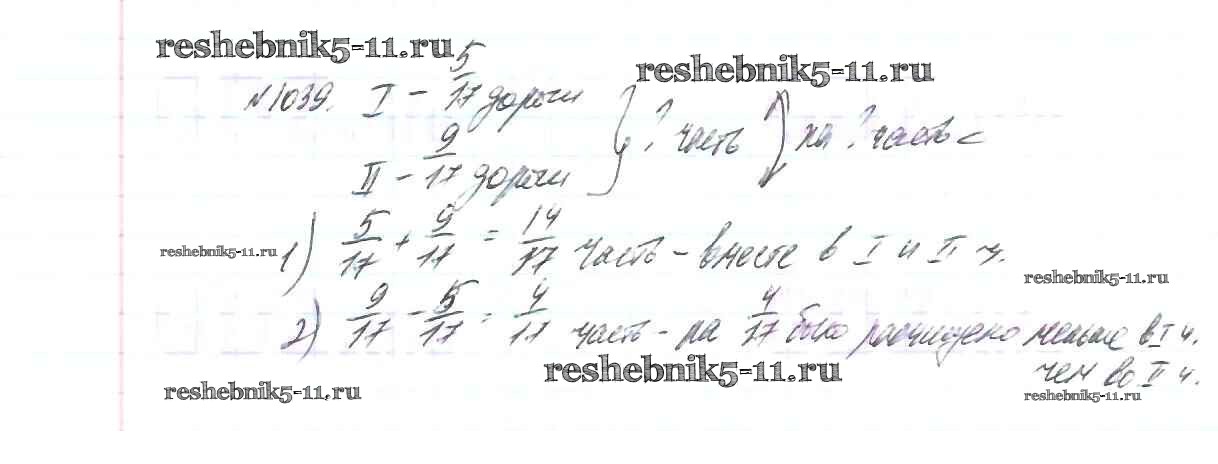 reshebnik5-11.ru
reshebnik5-11.ru
№1039. I - 5/17 дороги } ? часть } на ? часть <
II - 9/17 дороги
1) 5/17 + 9/17 = 14/17 часть - вместе в I и II ч.
reshebnik5-11.ru
reshebnik5-11.ru
2) 9/17 - 5/17 = 4/17 часть - на 4/17 было расчищено меньше в I ч.
чем во II ч.
reshebnik5-11.ru
reshebnik5-11.ru
reshebnik5-11.ru